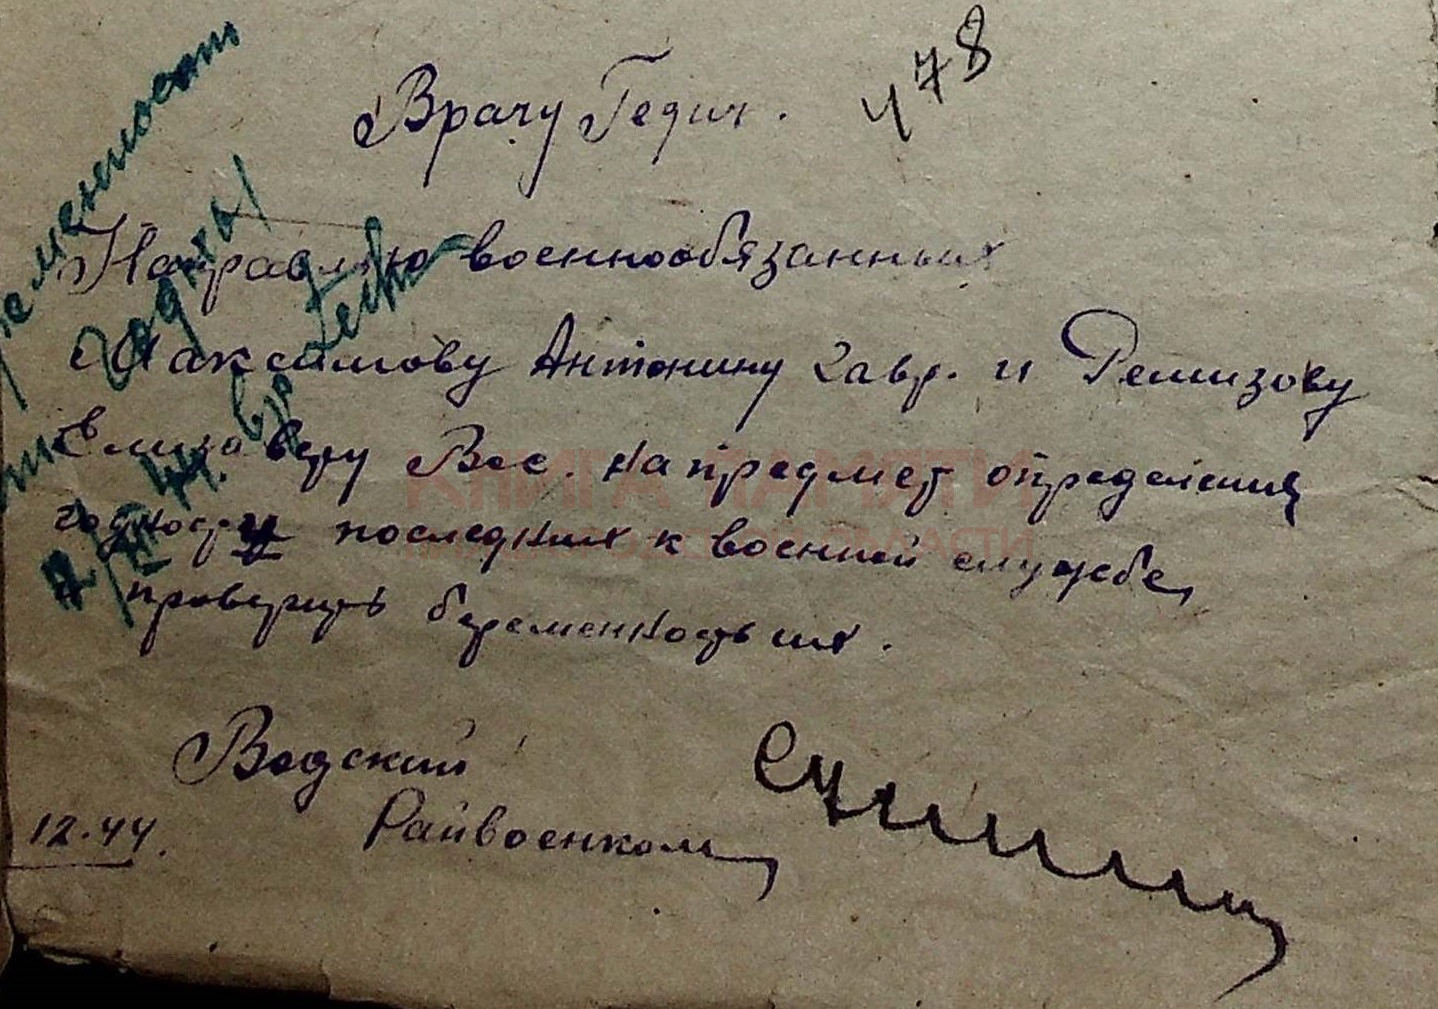 478
Врачу Гедич.
Направляю военнообязанных
Максимову Антонину Лавр. и Ремизову
Елизаверу Вас. на предмет определения
годности последних к военной службе,
проверить беременность их.
Вадский
Райвоенком
12.44.
годны
КНИГА ПАМЯТИ